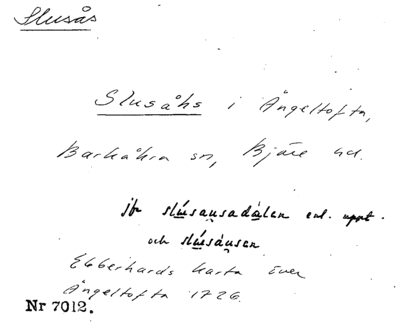 Slusås
Slusåhs i Ängeltofta,
Barkåkra sn, Bjäre hd.
jfr slúsausadálen enl. uppt.
och slúsáusen
Ebberhards karta över
Ängeltofta 1726
Nr 7012.